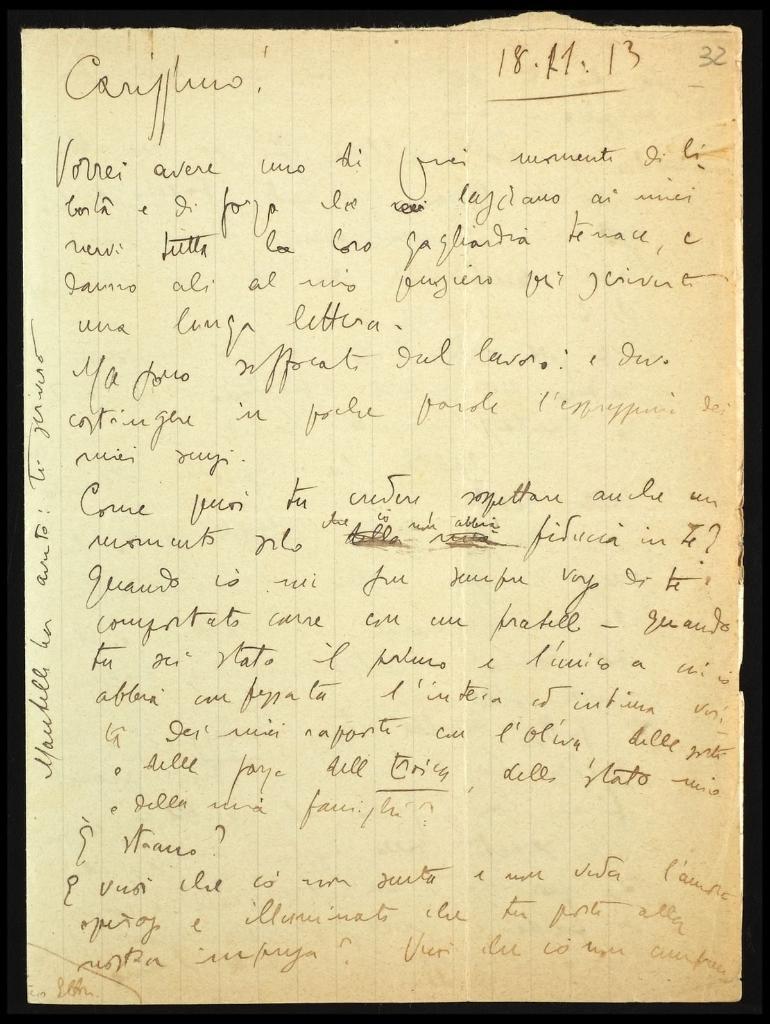 18.11.13
32
Carissimo!
Vorrei avere uno di quei momenti di li-
bertà e di forza che lasciano ai miei
nervi tutta la loro gagliardia tenace, e
danno ali al mio pensiero per scriverti
una lunga lettera.
Ma sono soffocato dal lavoro: e devo
costringere in poche parole l'espressione dei
miei sensi.
Come puoi tu credere sospettare anche un
momento solo che io non abbia fiducia in te?
Quando io mi son sempre verso di te
comportato come con un fratello – quando
tu sei stato il primo e l'unico a cui io
abbia confessata l'intera ed intima veri-
tà dei miei rapporti con l'Oliva delle sorti
e delle forze dell' Eroica, dello stato mio
e della mia famiglia?
E strano?
E vuoi che io non senta e non veda l'amore
operoso e illuminato che tu porti alla
nostra impresa? Vuoi che io non
Mantelli ha avuto: ti scriverò